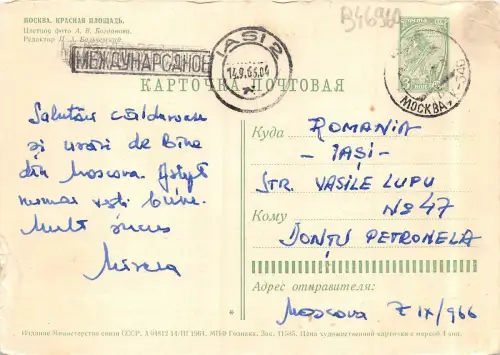 МОСКВА. КРАСНАЯ ПЛОЩАДЬ.
Цветное фото А. В. Богданова.
Редактор
МЕЖДУНАРОДНОЕ
IASI 2
14.9.66.04
КАРТОЧКА ПОЧТОВАЯ
ПОЧТА СССР
МОСКВА
Salutări călduroase
și urări de bine
din Moscova. Aștept
numai vești bune.
Mult succes
Mirela
Куда ROMANIA
- IAȘI -
STR. VASILE LUPU
No 47
Кому
DONȚU PETRONELA
Адрес отправителя:
Moscova 7 IX/966
Издание Министерства связи СССР. А 04612 14/III 1961. МПФ Гознака. Зак. 11585. Цена художественной карточки с маркой 4 коп.